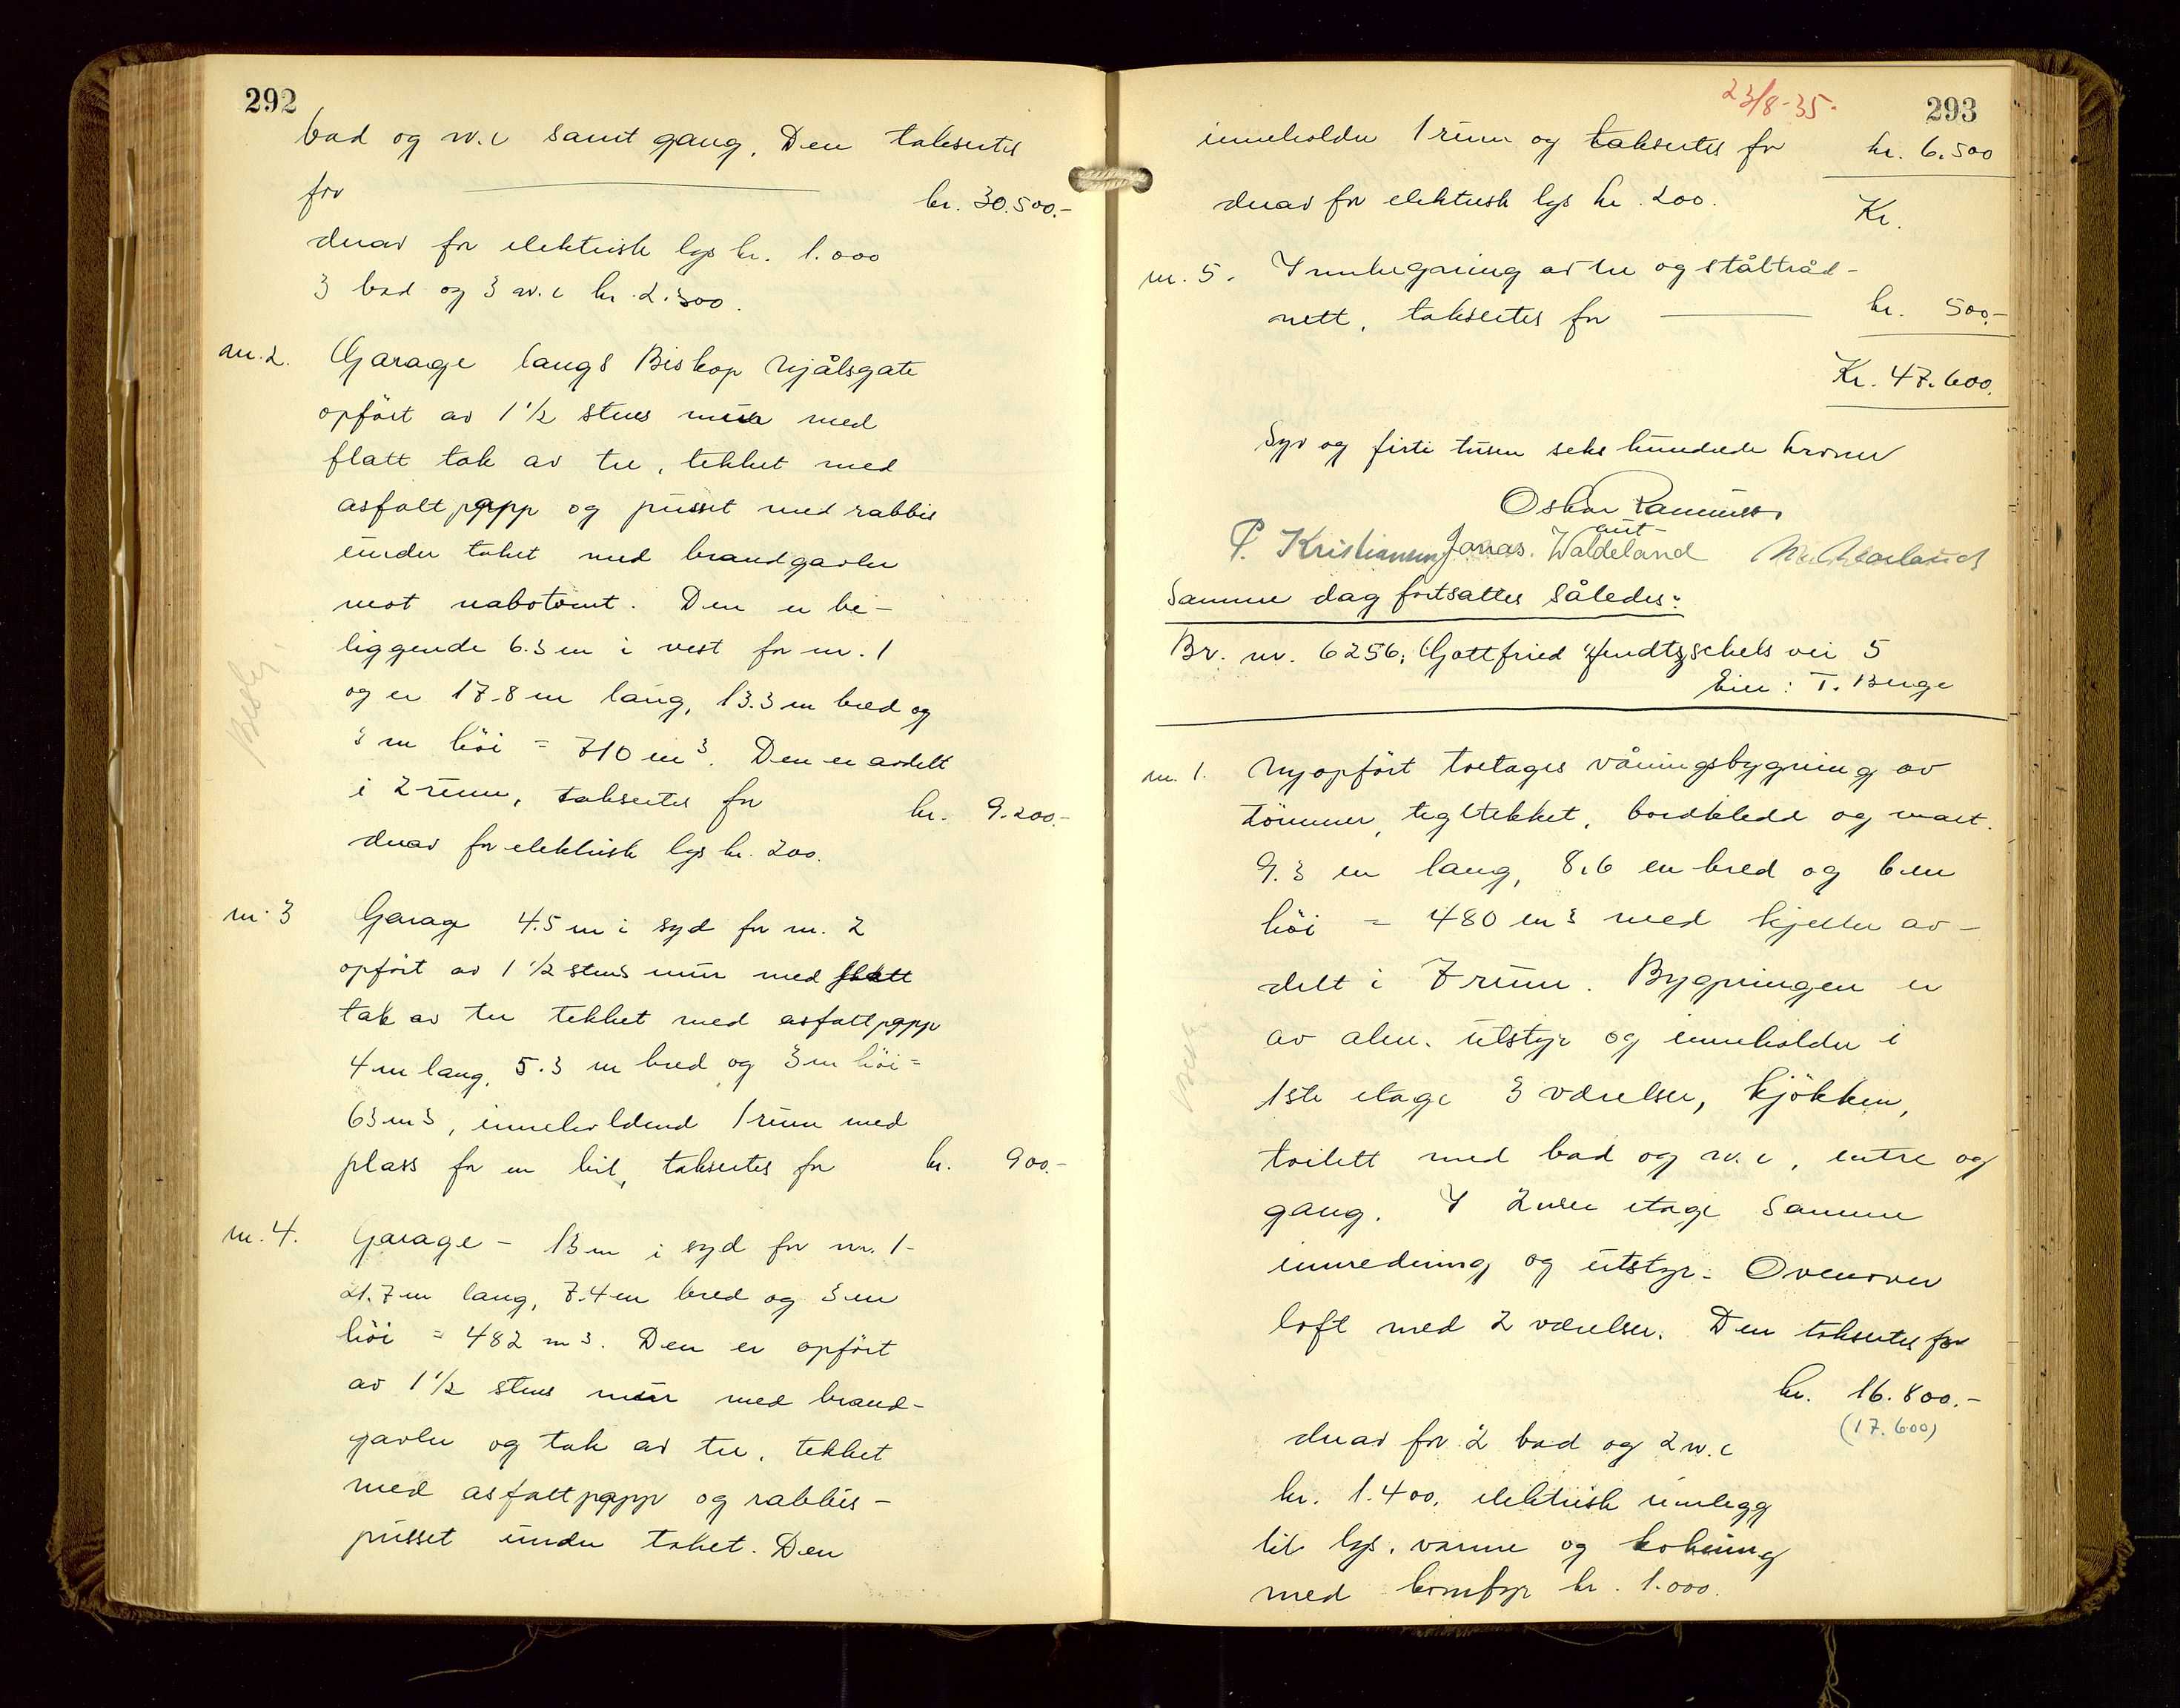 292
bad og w.c samt gang. Den takseres
for kr. 30.500.-
derav for elektrisk lys kr. 1.000
3 bad og 3 w.c kr. 2.300.
nr. 2. Garage langs Biskop Njålsgate
opført av 1 1/2 stens mur med
flatt tak av tre, tekket med
asfaltpapp og pusset med rabbis
under taket med brandgavler
mot nabotomt. Den er be-
liggende 6.3 m i vest for nr. 1
og er 17.8 m lang, 13.3 m bred og
3 m höi = 710 m³. Den er avdelt
i 2 rum, takseres for kr. 9.200.-
derav for elektrisk lys kr. 200.
nr. 3 Garage 4.5 m i syd for nr. 2
opført av 1 1/2 stens mur med flatt
tak av tre tekket med asfaltpapp
4 m lang, 5.3 m bred og 3 m höi =
63 m³, inneholdend 1 rum med
plass for en bil, takseres for kr. 900.-
nr. 4. Garage - 13 m i syd for nr. 1 -
21.7 m lang, 7.4 m bred og 3 m
höi = 482 m³. Den er opført
av 1 1/2 stens mur med brand-
gavler og tak av tre, tekket
med asfaltpapp og rabbis-
pusset under taket. Den
23/8-35.
293
inneholder 1 rum og takseres for kr. 6.500
derav for elektrisk lys kr. 200. Kr.
nr. 5. Innhegning av tre og ståltråd-
nett, takseres for kr. 500.-
Kr. 47.600.
Syv og firti tusen seks hundrede kroner
Oskar
P. Kristiansen Jonas. Waldeland
Samme dag fortsattes således:
Br. nr. 6256, Gottfried Jendtzschels vei 5
Eier: T. Berge
nr. 1. Nyopført toetages våningsbygning av
tömmer, tegltekket, bordkledd og malt.
9.3 m lang, 8.6 m bred og 6 m
höi = 480 m³ med kjeller av-
delt i 7 rum. Bygningen er
av alm. utstyr og inneholder i
1ste etage 3 værelser, kjökken,
toilett med bad og w.c, entre og
gang. I 2nen etage samme
innredning og utstyr. Ovenover
loft med 2 værelser. Den takseres for
kr. 16.800.-
(17.600)
derav for 2 bad og 2 w.c
kr. 1.400, elektrisk innlegg
til lys, varme og kokning
med komfyr kr. 1.000.